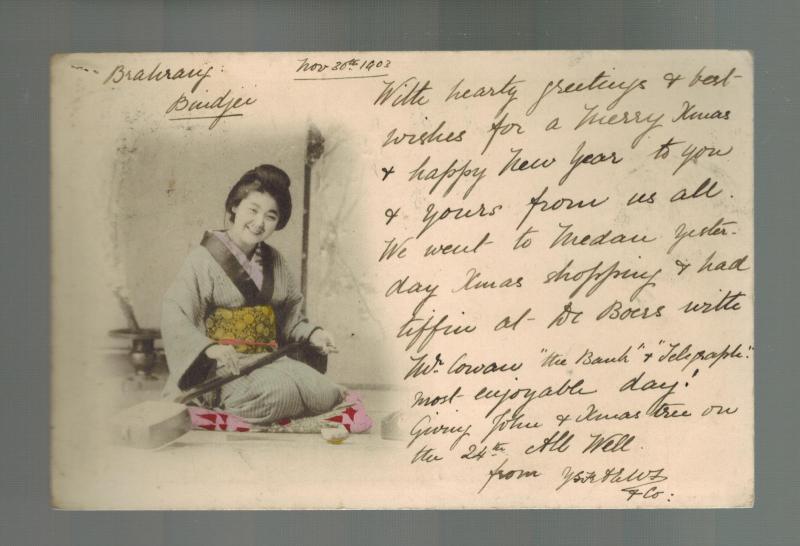 Brahrang
Bindjei
Nov 30th 1903
With hearty greetings & best
wishes for a Merry Xmas
& happy New Year to you
& yours from us all.
We went to Medan yester-
day Xmas shopping & had
tiffin at De Boers with
Mr. Cowan "the Bank" & "Telegraph".
most enjoyable day!
Giving John & Xmas tree on
the 24th All Well.
from
& Co: